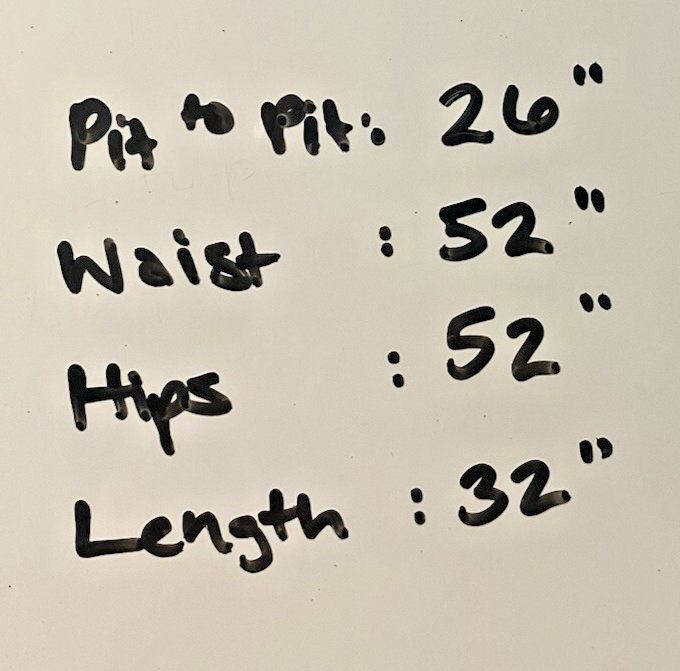 Pit to Pit: 26"
Waist : 52"
Hips : 52"
Length : 32"